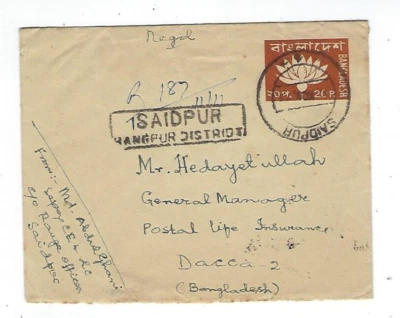 Regd
বাংলাদেশ
BANGLADESH
২০ প. 20 P.
R 187
11/11
SAIDPUR
1SAIDPUR
RANGPUR DISTRICT
Mr. Hedayet ullah
General Manager
Postal Life Insurance
Dacca-2
(Bangladesh)
From:- Md. Abdul Ghani
C/O Range officer
Saidpur